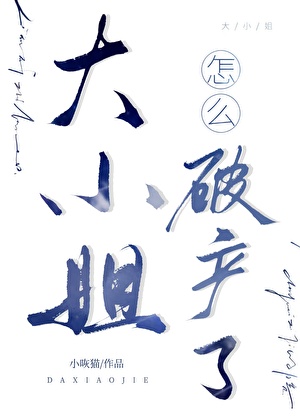 大/小/姐
大小姐
怎么
破产了
小恢猫/作品
DAXIAOJIE